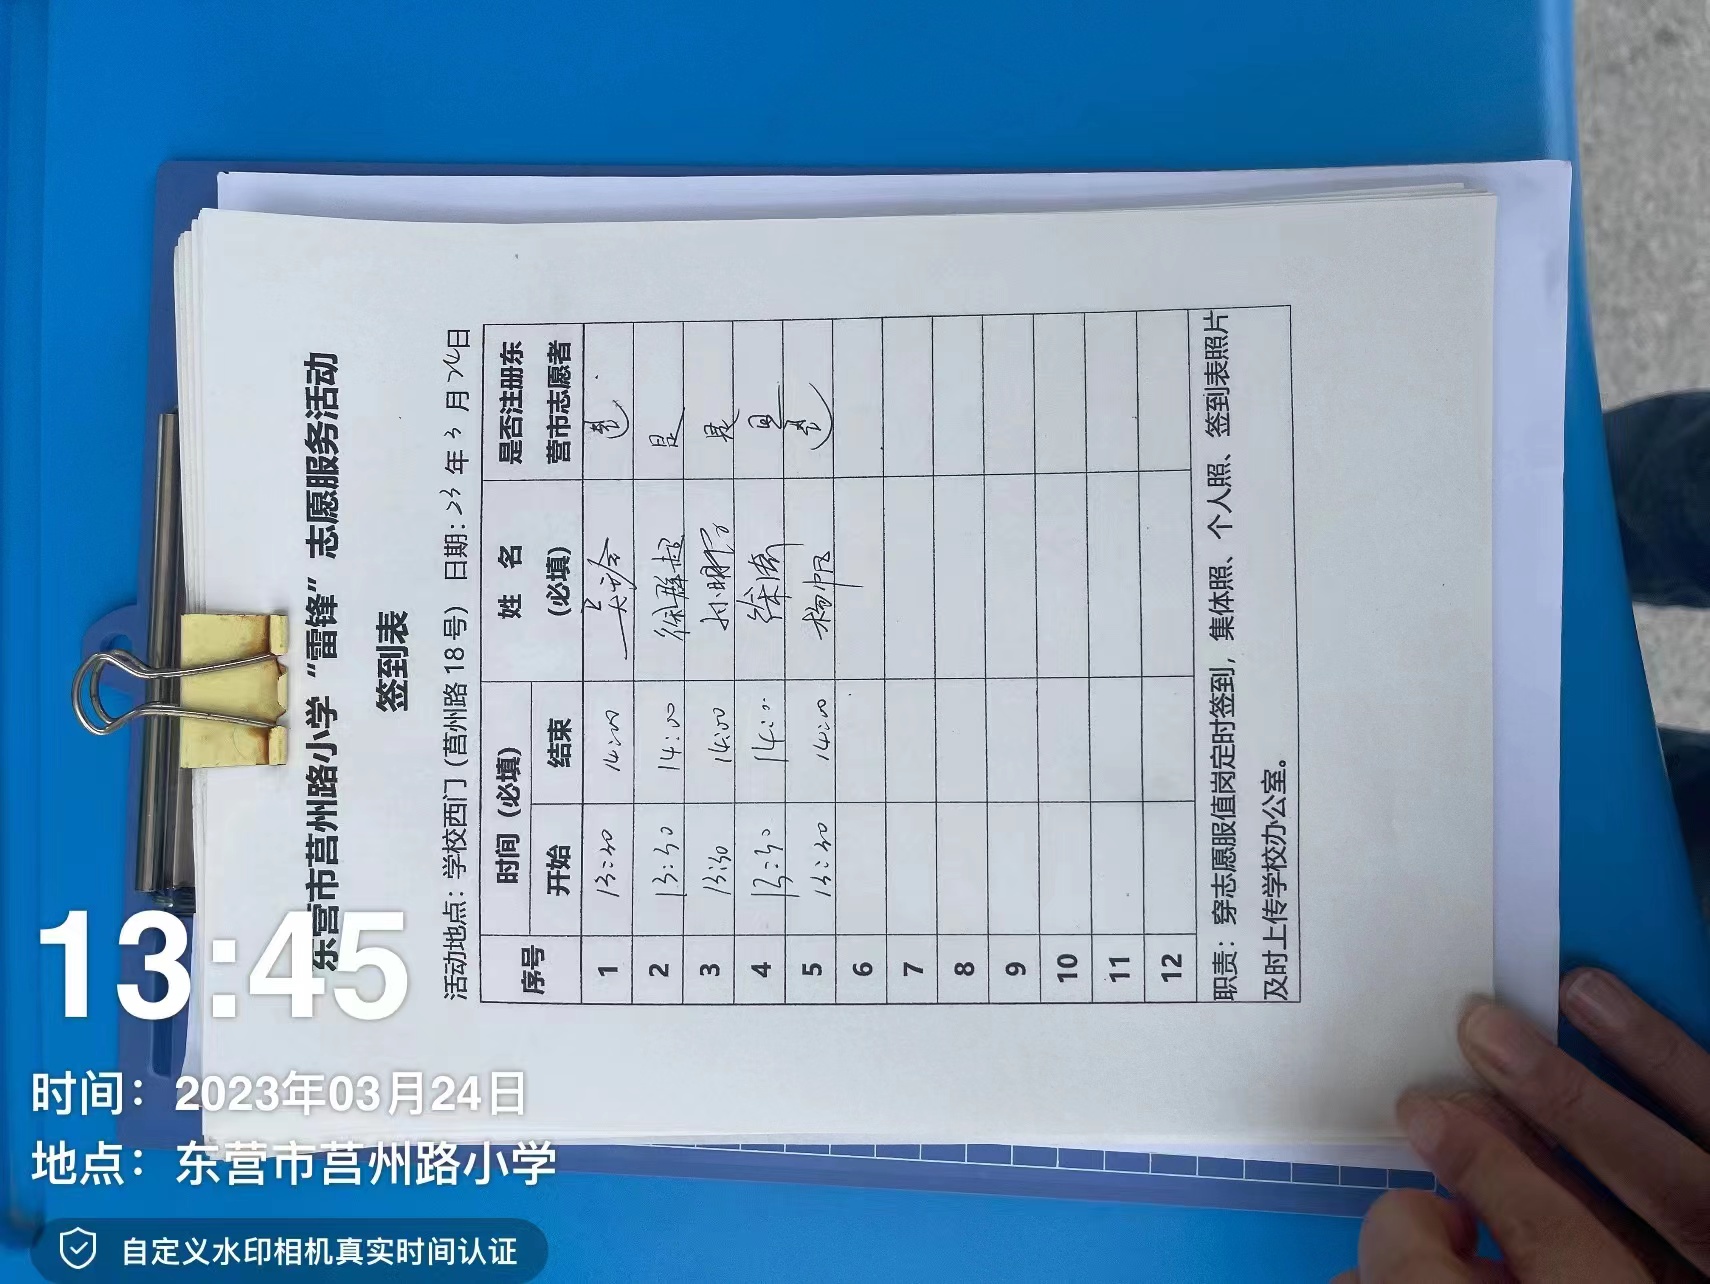 东营市莒州路小学“雷锋”志愿服务活动
签到表
活动地点：学校西门（莒州路 18 号） 日期：23 年 3 月 24 日
序号 时间（必填） 姓 名（必填） 是否注册东营市志愿者
开始 结束
1 13:30 14:00 是
2 13:30 14:00 徐胜超 是
3 13:30 14:00 孙明 是
4 13:30 14:00 是
5 13:30 14:00 杨帆 是
6
7
8
9
10
11
12
职责：穿志愿服值岗定时签到，集体照、个人照、签到表照片
及时上传学校办公室。
13:45
时间：2023年03月24日
地点：东营市莒州路小学
自定义水印相机真实时间认证